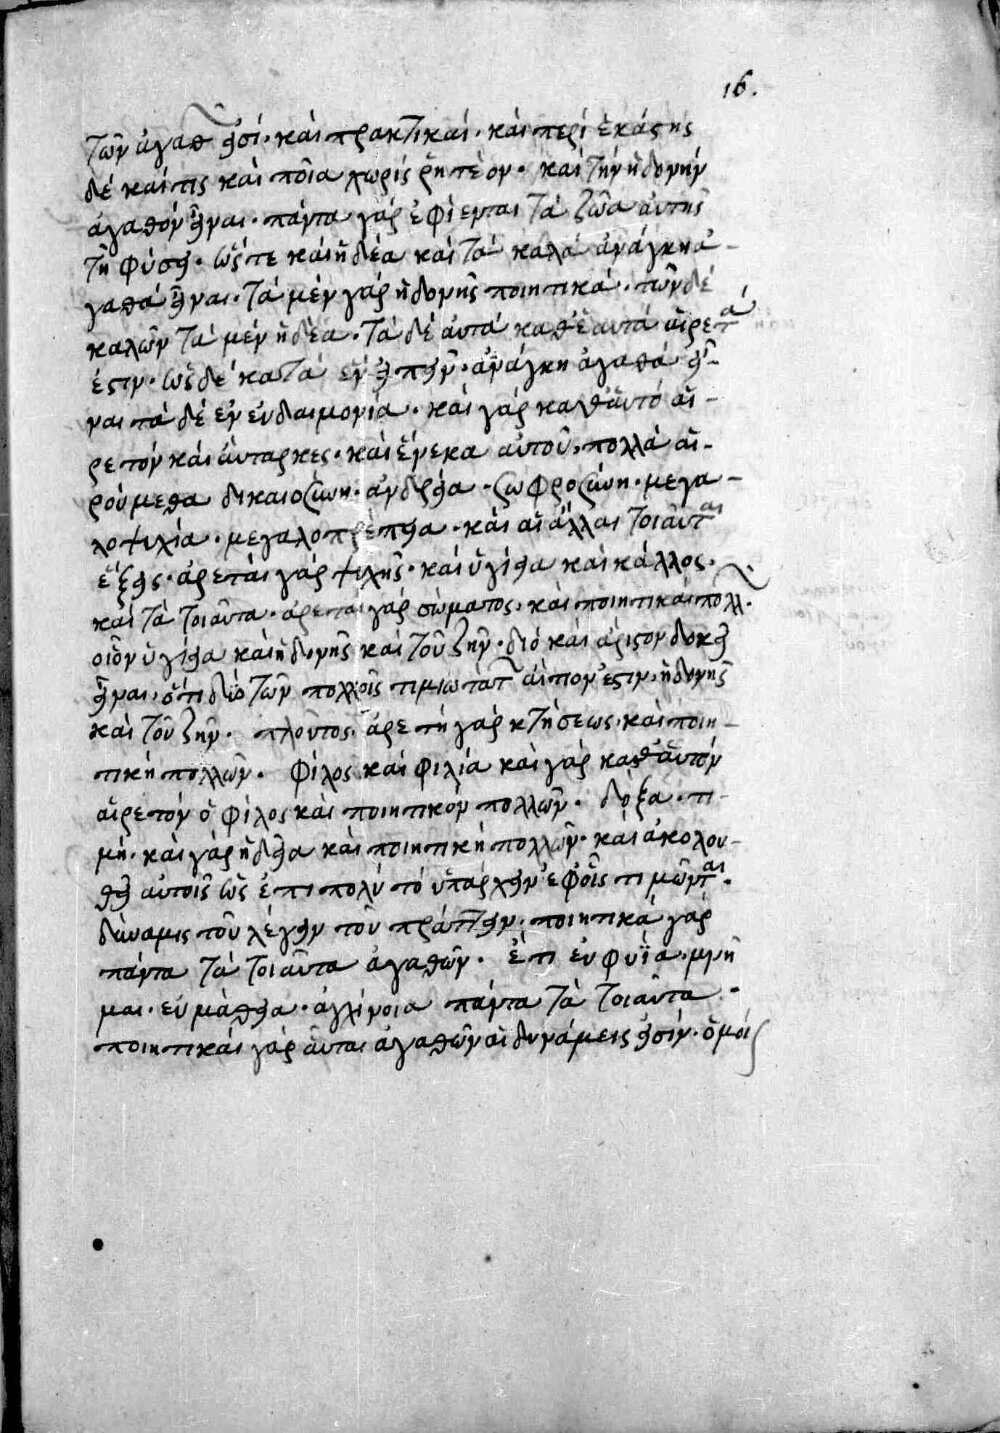 16.
τῶν ἀγαθ εἰσί· καὶ πρακτικαί· καὶ περὶ ἑκάστης
δὲ καὶ τις καὶ ποῖα χωρὶς ῥητέον· καὶ τὴν ἡδονὴν
ἀγαθὸν εἶναι· πάντα γὰρ ἐφίεται τὰ ζῶα αὐτῆς
τῆ φύσει· ὥστε καὶ ἡδέα καὶ τὰ καλὰ ἀνάγκη ἀ-
γαθὰ εἶναι· τὰ μὲν γὰρ ἡδονῆς ποιητικά· τῶν δὲ
καλῶν τὰ μὲν ἡδέα· τὰ δὲ αὐτὰ καθ' ἑαυτὰ αἱρετά
ἐστιν· ὡς δὲ κατὰ ἓν εἰπεῖν· ἀνάγκη ἀγαθὰ εἶ-
ναι τὰ δὲ εν εὐδαιμονία· καὶ γὰρ καθ' ἁυτό αἱ-
ρετὸν καὶ ἀυταρκες· καὶ ἕνεκα αὐτοῦ πολλὰ αἱ-
ρούμεθα δικαιοσύνη· ἀνδρεία· σωφροσύνη· μεγα-
λοψυχία· μεγαλοπρέπεια· καὶ αἱ ἄλλαι τοιαῦται
ἕξεις· ἀρεταὶ γὰρ ψυχῆς· καὶ ὑγίεια καὶ κάλλος·
καὶ τὰ τοιαῦτα· ἀρεταὶ γὰρ σώματος· καὶ ποιητικαὶ πολλ·
οἷον ὑγίεια καὶ ἡδονῆς καὶ τοῦ ζῆν· διὸ καὶ ἄριστον δοκεῖ
εἶναι· ὅτι δύο τῶν πολλοῖς τιμιωτάτ αἴτιον ἐστιν· ἡδονῆς
καὶ τοῦ ζῆν· πλοῦτος· ἀρετὴ γὰρ κτήσεως· καὶ ποιη-
τικὴ πολλῶν· φίλος καὶ φιλία καὶ γὰρ καθ' ἁυτὸν
αἱρετὸν ὁ φίλος καὶ ποιητικὸν πολλῶν· δόξα· τι-
μή· καὶ γὰρ ἡδεῖα καὶ ποιητικὴ πολλῶν· καὶ ἀκολου-
θεῖ αὐτοῖς ὡς ἐπι πολὺ τὸ ὑπάρχειν ἐφ' οἷς τιμῶνται·
δύναμις τοῦ λέγειν τοῦ πράττειν· ποιητικὰ γὰρ
πάντα τὰ τοιαῦτα ἀγαθῶν· ἔτι εὐφυΐα· μνῆ
μαι· εὐμάθεια· ἀγχίνοια πάντα τὰ τοιαῦτα·
ποιητικαὶ γὰρ αὗται ἀγαθῶν αἱ δυνάμεις εἰσίν· ὁμοί